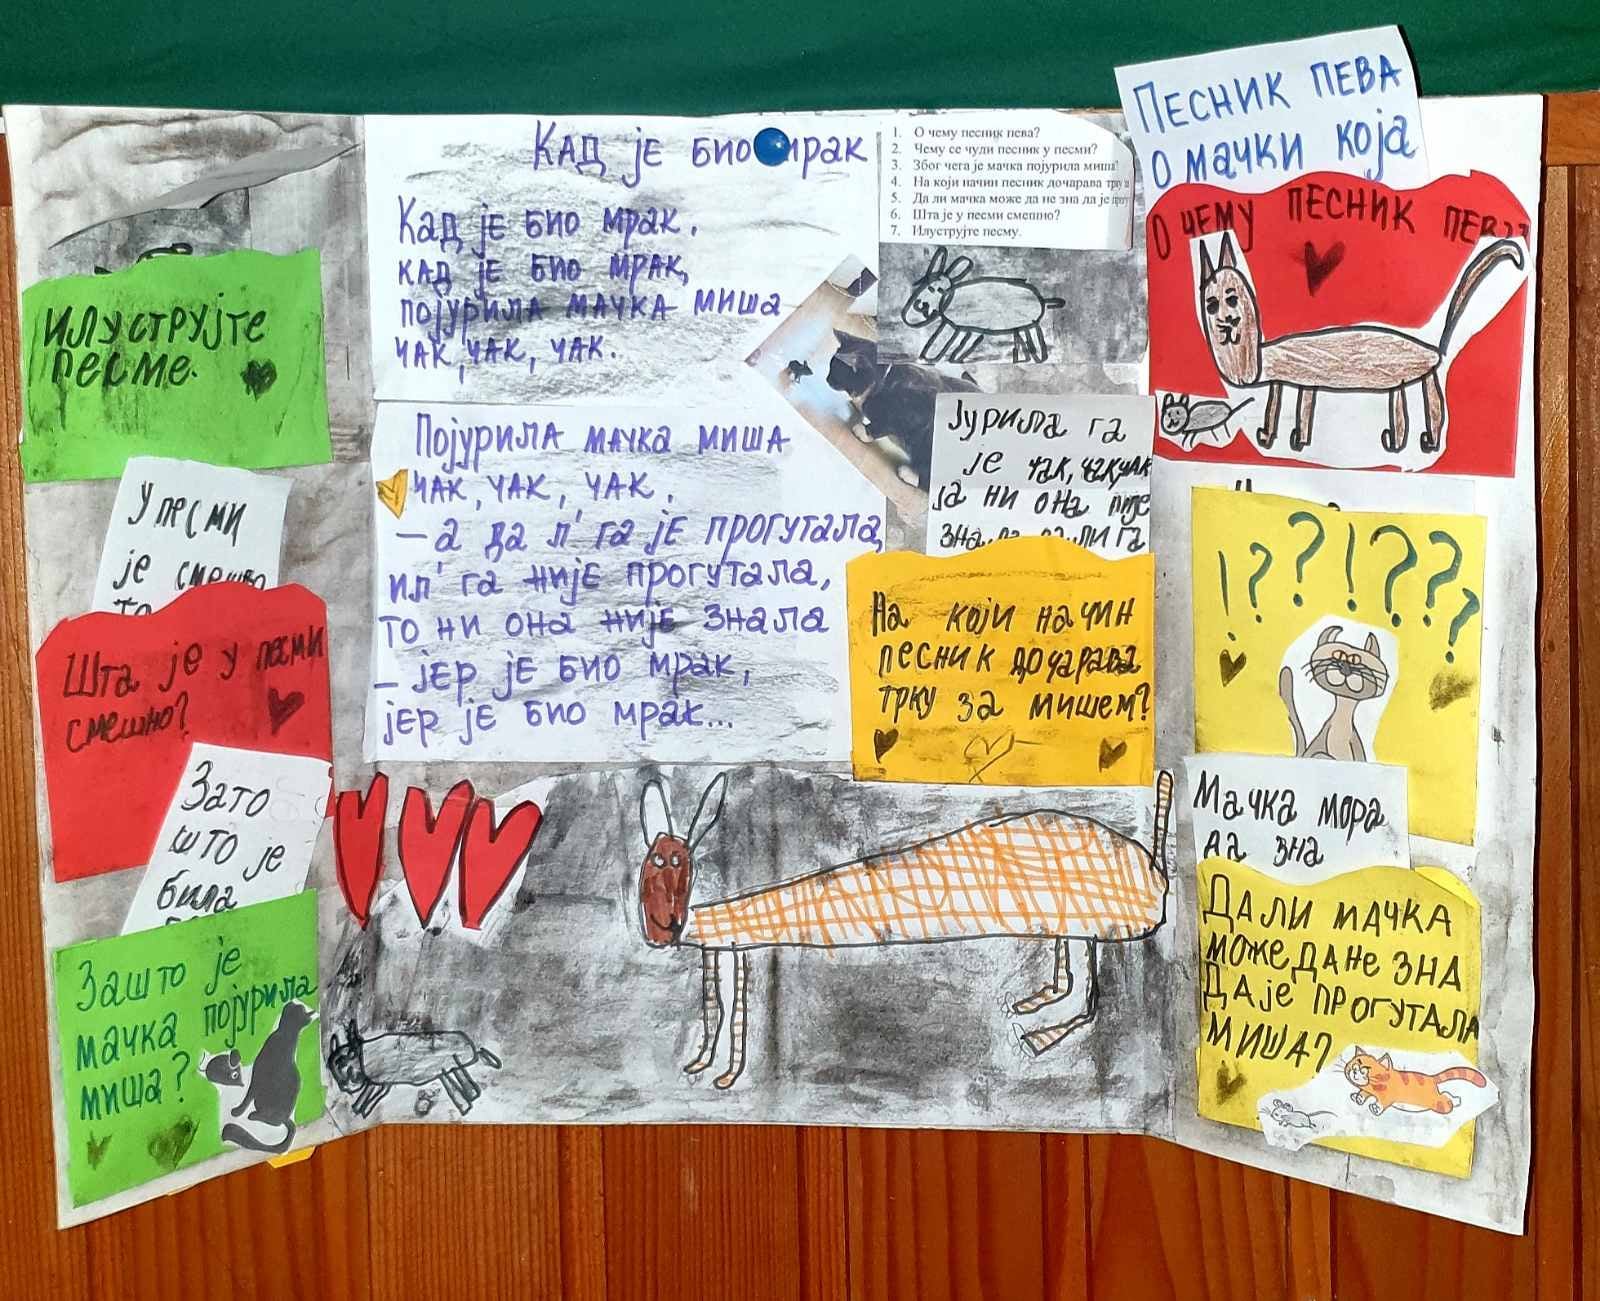 Илуструјте
песме.
У песми
је смешно
то
Шта је у песми
смешно?
Зато
што је
била
Зашто је
мачка појурила
миша?
Кад је био мрак
Кад је био мрак.
кад је био мрак,
појурила мачка миша
чак, чак, чак.
Појурила мачка миша
чак, чак, чак.
– а да л' га је прогутала,
ил' га није прогутала,
то ни она није знала
– јер је био мрак,
јер је био мрак...
1. О чему песник пева?
2. Чему се чуди песник у песми?
3. Због чега је мачка појурила миша?
4. На који начин песник дочарава трку
5. Да ли мачка може да не зна да је
6. Шта је у песми смешно?
7. Илуструјте песму.
Јурила га
је чак, чак, чак
ја ни она није
знала да ли га
На који начин
песник дочарава
трку за мишем?
Песник пева
о мачки која
О чему песник пева?
!??!???
Мачка мора
да зна
Да ли мачка
може да не зна
да је прогутала
миша?